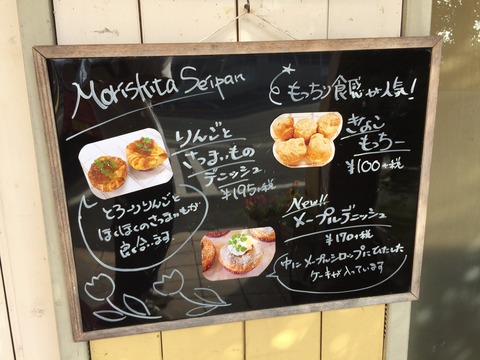 Moriskita Seipan
もっちり食感が人気!
りんごと
さつまいもの
デニッシュ
¥195+税
とろーりりんごと
ほくほくのさつまいもが
良く合います。
きなこ
もっちー
¥100+税
New!!
メープルデニッシュ
¥170+税
中にメープルシロップにひたした
ケーキが入っています